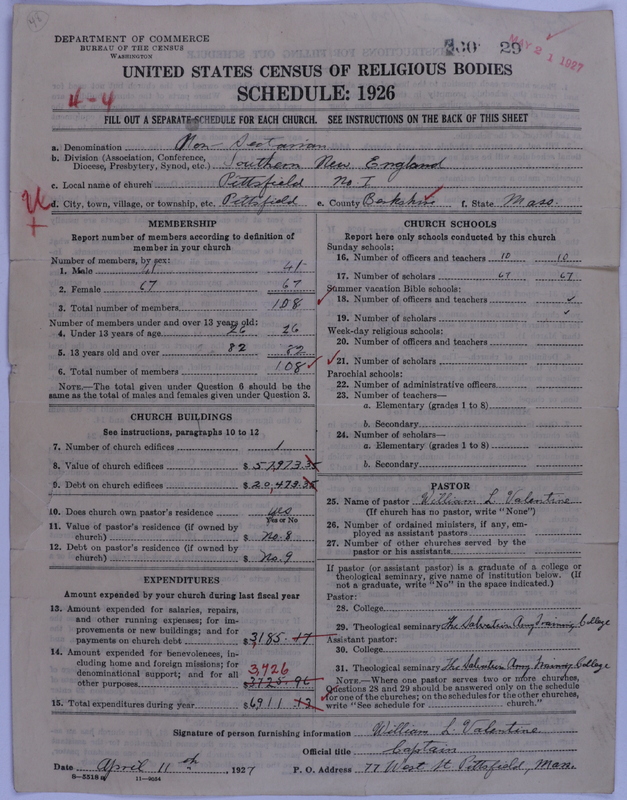 DEPARTMENT OF COMMERCE
BUREAU OF THE CENSUS
WASHINGTON
29
MAY 21 1927
UNITED STATES CENSUS OF RELIGIOUS BODIES
SCHEDULE: 1926
4-4
FILL OUT A SEPARATE SCHEDULE FOR EACH CHURCH. SEE INSTRUCTIONS ON THE BACK OF THIS SHEET
a. Denomination Non-Sectarian
b. Division (Association, Conference, Diocese, Presbytery, Synod, etc.) Southern New England
c. Local name of church Pittsfield No. I
d. City, town, village, or township, etc. Pittsfield e. County Berkshire f. State Mass.
MEMBERSHIP
Report number of members according to definition of member in your church
Number of members, by sex:
1. Male 41 41
2. Female 67 67
3. Total number of members 108
Number of members under and over 13 years old:
4. Under 13 years of age 26 26
5. 13 years old and over 82 82
6. Total number of members 108
NOTE.—The total given under Question 6 should be the same as the total of males and females given under Question 3.
CHURCH BUILDINGS
See instructions, paragraphs 10 to 12
7. Number of church edifices 1
8. Value of church edifices $57,973.35
9. Debt on church edifices $20,473.35
10. Does church own pastor's residence yes
Yes or No
11. Value of pastor's residence (if owned by church) $ No. 8
12. Debt on pastor's residence (if owned by church) $ No. 9
EXPENDITURES
Amount expended by your church during last fiscal year
13. Amount expended for salaries, repairs, and other running expenses; for improvements or new buildings; and for payments on church debt $3,185.17
14. Amount expended for benevolences, including home and foreign missions; for denominational support; and for all other purposes 3,726 $3725.96
15. Total expenditures during year $6911.13
CHURCH SCHOOLS
Report here only schools conducted by this church
Sunday schools:
16. Number of officers and teachers 10 10
17. Number of scholars 67 67
Summer vacation Bible schools:
18. Number of officers and teachers
19. Number of scholars
Week-day religious schools:
20. Number of officers and teachers
21. Number of scholars
Parochial schools:
22. Number of administrative officers
23. Number of teachers—
a. Elementary (grades 1 to 8)
b. Secondary
24. Number of scholars—
a. Elementary (grades 1 to 8)
b. Secondary
PASTOR
25. Name of pastor William L. Valentine
(If church has no pastor, write "None")
26. Number of ordained ministers, if any, employed as assistant pastors
27. Number of other churches served by the pastor or his assistants
If pastor (or assistant pastor) is a graduate of a college or theological seminary, give name of institution below. (If not a graduate, write "No" in the space indicated.)
Pastor:
28. College
29. Theological seminary The Salvation Army Training College
Assistant pastor:
30. College
31. Theological seminary The Salvation Army Training College
NOTE.—Where one pastor serves two or more churches, Questions 28 and 29 should be answered only on the schedule for one of the churches; on the schedules for the other churches, write "See schedule for church."
Signature of person furnishing information William L. Valentine
Official title Captain
Date April 11th, 1927 P. O. Address 77 West St Pittsfield, Mass.
8-5518a 11-9034